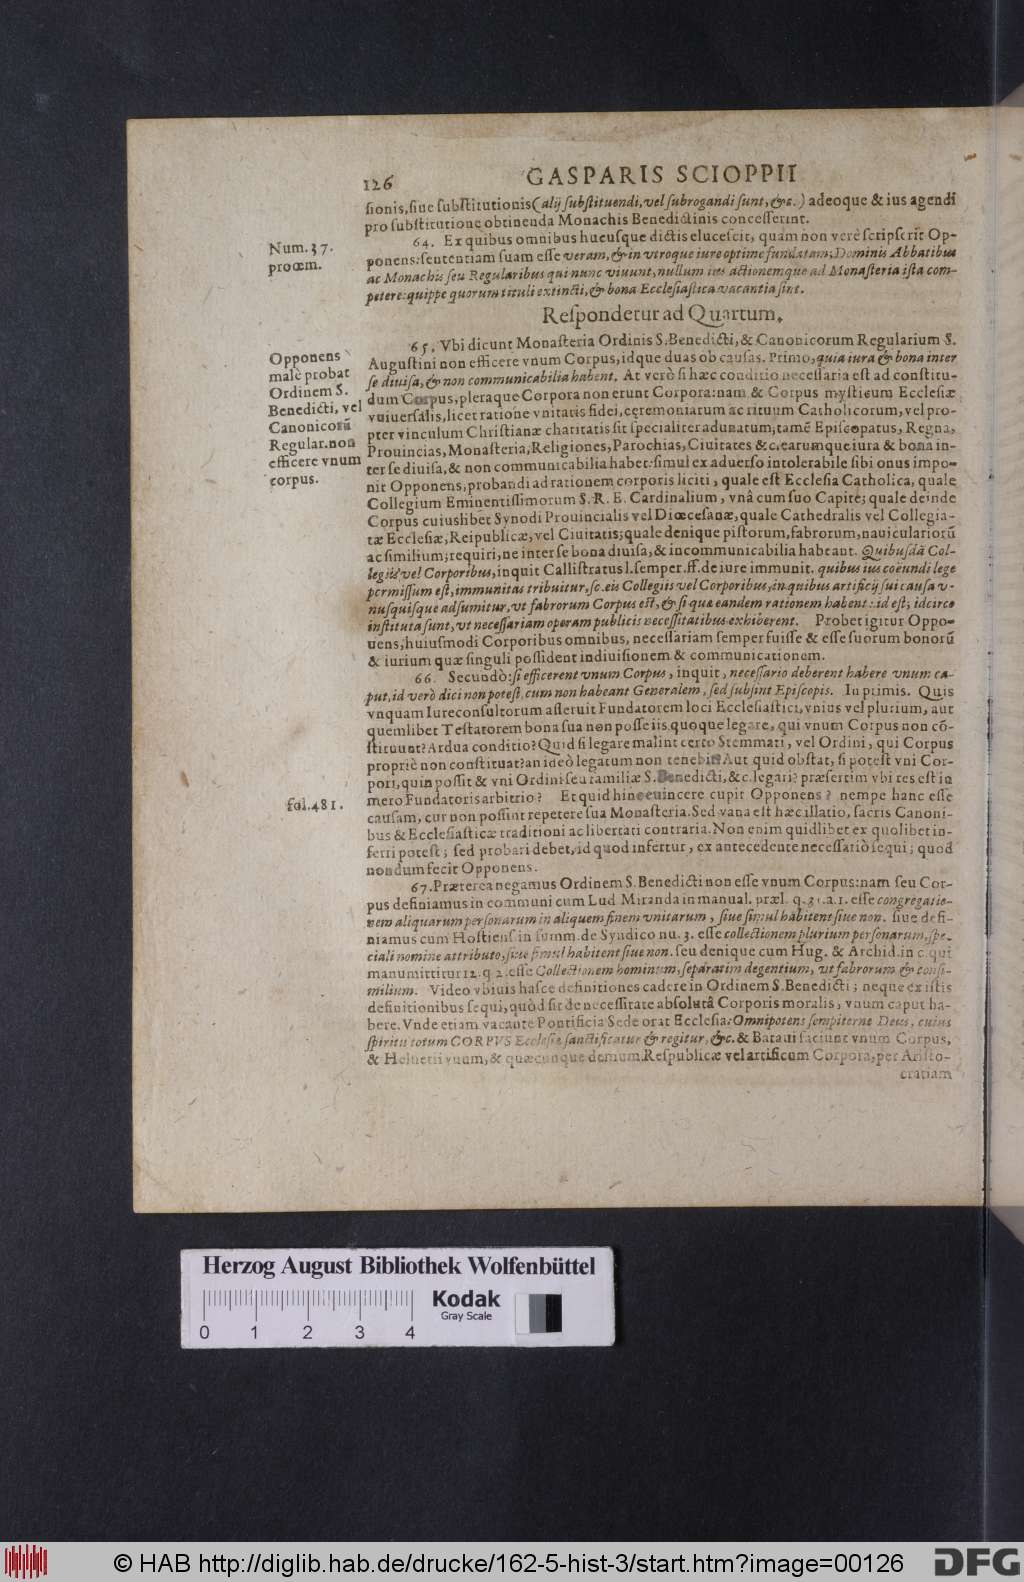 126 GASPARIS SCIOPPII
sionis, siue substitutionis (alij substituendi, vel subrogandi sunt, &c.) adeoque & ius agendi
pro substitutione obtinenda Monachis Benedictinis concesserint.
Num. 37.
proœm.
64. Ex quibus omnibus hucusque dictis elucescit, quàm non verè scripserit Op-
ponens: sententiam suam esse veram, & in vtroque iure optime fundatam; Dominis Abbatibus
ac Monachis seu Regularibus qui nunc viuunt, nullum ius actionemque ad Monasteria ista com-
petere: quippe quorum tituli extincti, & bona Ecclesiastica vacantia sint.
Respondetur ad Quartum.
Opponens
malè probat
Ordinem S.
Benedicti, vel
Canonicorū
Regular. non
efficere vnum
corpus.
65. Vbi dicunt Monasteria Ordinis S. Benedicti, & Canonicorum Regularium S.
Augustini non efficere vnum Corpus, idque duas ob causas. Primo, quia iura & bona inter
se diuisa, & non communicabilia habent. At verò si hæc conditio necessaria est ad constitu-
dum Corpus, pleraque Corpora non erunt Corpora: nam & Corpus mysticum Ecclesiæ
vniuersalis, licet ratione vnitatis fidei, ceremoniarum ac rituum Catholicorum, vel pro-
pter vinculum Christianæ charitatis sit specialiter adunatum, tamē Episcopatus, Regna,
Prouincias, Monasteria, Religiones, Parochias, Ciuitates &c. earumque iura & bona in-
ter se diuisa, & non communicabilia habet: simul ex aduerso intolerabile sibi onus impo-
nit Opponens, probandi ad rationem corporis liciti, quale est Ecclesia Catholica, quale
Collegium Eminentissimorum S. R. E. Cardinalium, vnâ cum suo Capite; quale deinde
Corpus cuiuslibet Synodi Prouincialis vel Diœcesanæ, quale Cathedralis vel Collegia-
tæ Ecclesiæ, Reipublicæ, vel Ciuitatis; quale denique pistorum, fabrorum, nauiculariorū
ac similium; requiri, ne inter se bona diuisa, & incommunicabilia habeant. Quibusdā Col-
legiis vel Corporibus, inquit Callistratus l. semper. ff. de iure immunit. quibus ius coëundi lege
permissum est, immunitas tribuitur, sc. eis Collegiis vel Corporibus, in quibus artificij sui causa v-
nusquisque adsumitur, vt fabrorum Corpus est, & si qua eandem rationem habent: id est, idcirco
instituta sunt, vt necessariam operam publicis necessitatibus exhiberent. Probet igitur Oppo-
nens, huiusmodi Corporibus omnibus, necessariam semper fuisse & esse suorum bonorū
& iurium quæ singuli possident indiuisionem & communicationem.
66. Secundò: si efficerent vnum Corpus, inquit, necessario deberent habere vnum ca-
put, id verò dici non potest, cum non habeant Generalem, sed subsint Episcopis. In primis. Quis
vnquam Iureconsultorum asseruit Fundatorem loci Ecclesiastici, vnius vel plurium, aut
quemlibet Testatorem bona sua non posse iis quoque legare, qui vnum Corpus non cō-
stituunt? Ardua conditio? Quid si legare malint certo Stemmati, vel Ordini, qui Corpus
propriè non constituat? an ideò legatum non tenebit? Aut quid obstat, si potest vni Cor-
pori, quin possit & vni Ordini seu familiæ S. Benedicti, &c. legari? præsertim vbi res est in
fol. 481.
mero Fundatoris arbitrio? Et quid hinc euincere cupit Opponens? nempe hanc esse
causam, cur non possint repetere sua Monasteria. Sed vana est hæc illatio, sacris Canoni-
bus & Ecclesiasticæ traditioni ac libertati contraria. Non enim quidlibet ex quolibet in-
ferri potest; sed probari debet, id quod infertur, ex antecedente necessariò sequi; quod
nondum fecit Opponens.
67. Præterea negamus Ordinem S. Benedicti non esse vnum Corpus: nam seu Cor-
pus definiamus in communi cum Lud Miranda in manual. præl. q. 31. a. 1. esse congregatio-
nem aliquarum personarum in aliquem finem vnitarum, siue simul habitent siue non. siue defi-
niamus cum Hostiens in summ. de Syndico nu. 3. esse collectionem plurium personarum, spe-
ciali nomine attributo, siue simul habitent siue non. seu denique cum Hug. & Archid. in c. qui
manumittitur 12. q. 2. esse Collectionem hominum, separatim degentium, vt fabrorum & consi-
milium. Video vbiuis hasce definitiones cadere in Ordinem S. Benedicti; neque ex istis
definitionibus sequi, quòd sit de necessitate absolutâ Corporis moralis, vnum caput ha-
bere. Vnde etiam vacante Pontificia Sede orat Ecclesia: Omnipotens sempiterne Deus, cuius
spiritu totum CORPVS Ecclesiæ sanctificatur & regitur, &c. & Bataui faciunt vnum Corpus,
& Heluetii vnum, & quæcunque demum Respublicæ vel artificum Corpora, per Aristo-
cratiam
Herzog August Bibliothek Wolfenbüttel
0 1 2 3 4
Kodak
Gray Scale
© HAB http://diglib.hab.de/drucke/162-5-hist-3/start.htm?image=00126
DFG